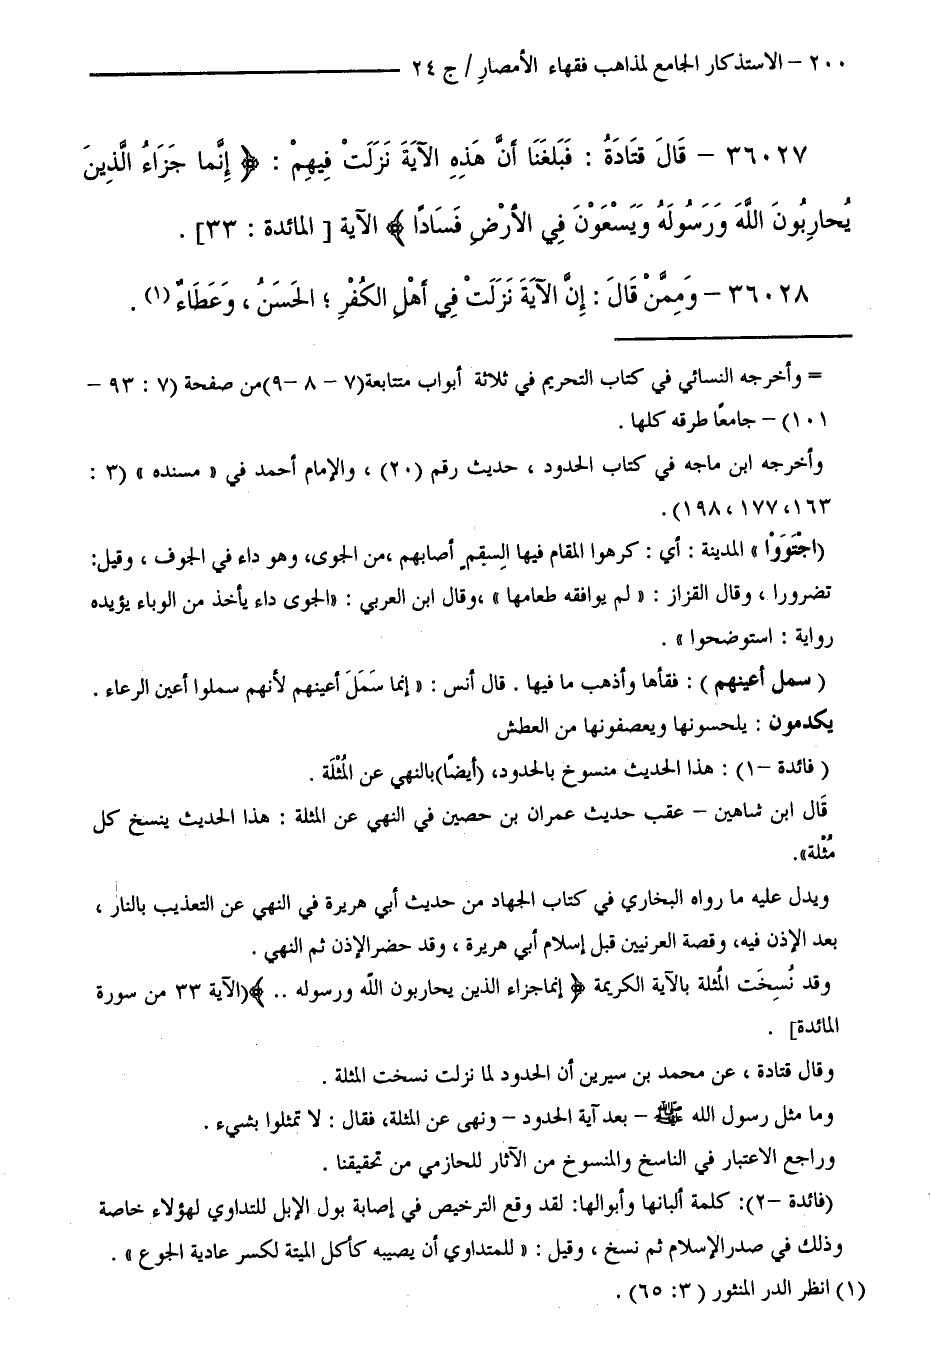 ٢٠٠ – الاستذكار الجامع لمذاهب فقهاء الأمصار / ج ٢٤
٣٦٠٢٧ – قَالَ قَتَادَةُ : فَبَلَغَنَا أَنَّ هَذِهِ الآيَةَ نَزَلَتْ فِيهِمْ : ﴿ إِنَّما جَزَاءُ الَّذِينَ
يُحارِبُونَ اللَّهَ وَرَسُولَهُ وَيَسْعَوْنَ فِي الأَرْضِ فَسَادًا ﴾ الآية [ المائدة : ٣٣] .
٣٦٠٢٨ – وَمِمَّنْ قَالَ : إِنَّ الآيَةَ نَزَلَتْ فِي أَهْلِ الكُفْرِ ؛ الحَسَنُ ، وَعَطَاءٌ (١) .
= وأخرجه النسائي في كتاب التحريم في ثلاثة أبواب متتابعة(٧ – ٨ –٩)من صفحة (٧ : ٩٣ –
١٠١) – جامعًا طرقه كلها .
وأخرجه ابن ماجه في كتاب الحدود ، حديث رقم (٢٠) ، والإمام أحمد في « مسنده » (٣ :
١٦٣، ١٧٧ ،١٩٨).
(اجْتَوَوْا » المدينة : أي : كرهوا المقام فيها لِسقمٍ أصابهم ،من الجوى، وهو داء في الجوف ، وقيل:
تضرورا ، وقال القزاز : « لم يوافقه طعامها » ،وقال ابن العربي : «الجوى داء يأخذ من الوباء يؤيده
رواية : استوضحوا » .
( سمل أعينهم ) : فقأها وأذهب ما فيها . قال أنس : « إنما سَمَلَ أعينهم لأنهم سملوا أعين الرعاء .
يكدمون : يلحسونها ويعصفونها من العطش
( فائدة –١) : هذا الحديث منسوخ بالحدود، (أيضًا)بالنهي عن المُثْلَة .
قَال ابن شاهين – عقب حديث عمران بن حصين في النهي عن المثلة : هذا الحديث ينسخ كل
مُثْلة».
ويدل عليه ما رواه البخاري في كتاب الجهاد من حديث أبي هريرة في النهي عن التعذيب بالنار ،
بعد الإذن فيه، وقصة العرنيين قبل إسلام أبي هريرة ، وقد حضر الإذن ثم النهي .
وقد نُسِخَت المُثلة بالآية الكريمة ﴿ إنما جزاء الذين يحاربون الله ورسوله .. ﴾(الآية ٣٣ من سورة
المائدة] .
وقال قتادة ، عن محمد بن سيرين أن الحدود لما نزلت نسخت المثلة .
وما مثل رسول الله ﷺ – بعد آية الحدود – ونهى عن المثلة، فقال : لا تمثلوا بشيء .
وراجع الاعتبار في الناسخ والمنسوخ من الآثار للحازمي من تحقيقنا .
(فائدة –٢): كلمة ألبانها وأبوالها: لقد وقع الترخيص في إصابة بول الإبل للتداوي لهؤلاء خاصة
وذلك في صدر الإسلام ثم نسخ ، وقيل : « للمتداوي أن يصيبه كأكل الميتة لكسر عادية الجوع » .
(١) انظر الدر المنثور ( ٣: ٦٥) .